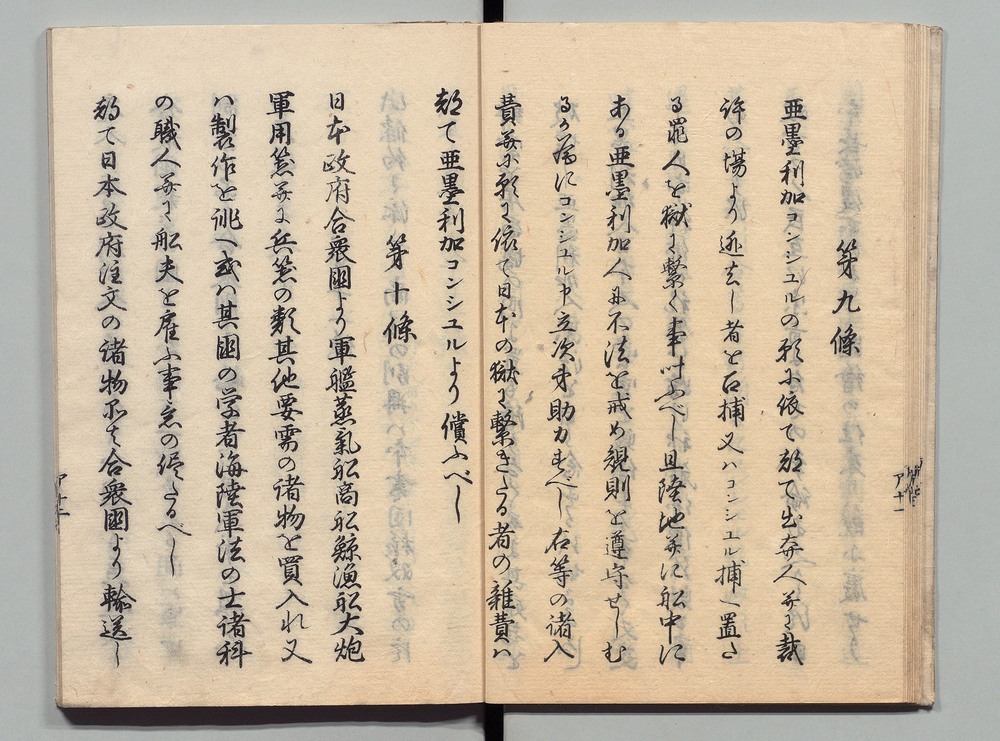 第九條
亜墨利加コンシユルの願に依て都て出奔人并に裁
許の場より逃去し者を召捕又ハコンシユル捕へ置さ
る罪人を獄に繋く事叶ふべし且陸地并に船中に
ある亜墨利加人に不法を戒め規則を遵守せしむ
るか為にコンシユル申立次第助力すべし右等の諸入
費并に願に依て日本の獄に繋きたる者の雑費ハ
都て亜墨利加コンシユルより償ふべし
第十條
日本政府合衆國より軍艦蒸氣船商船鯨漁船大炮
軍用噐并に兵噐の類其他要需の諸物を買入れ又
ハ製作を誂へ或ハ其國の学者海陸軍法の士諸科
の職人并に船夫を雇ふ事意の儘たるべし
都て日本政府注文の諸物品は合衆國より輸送し